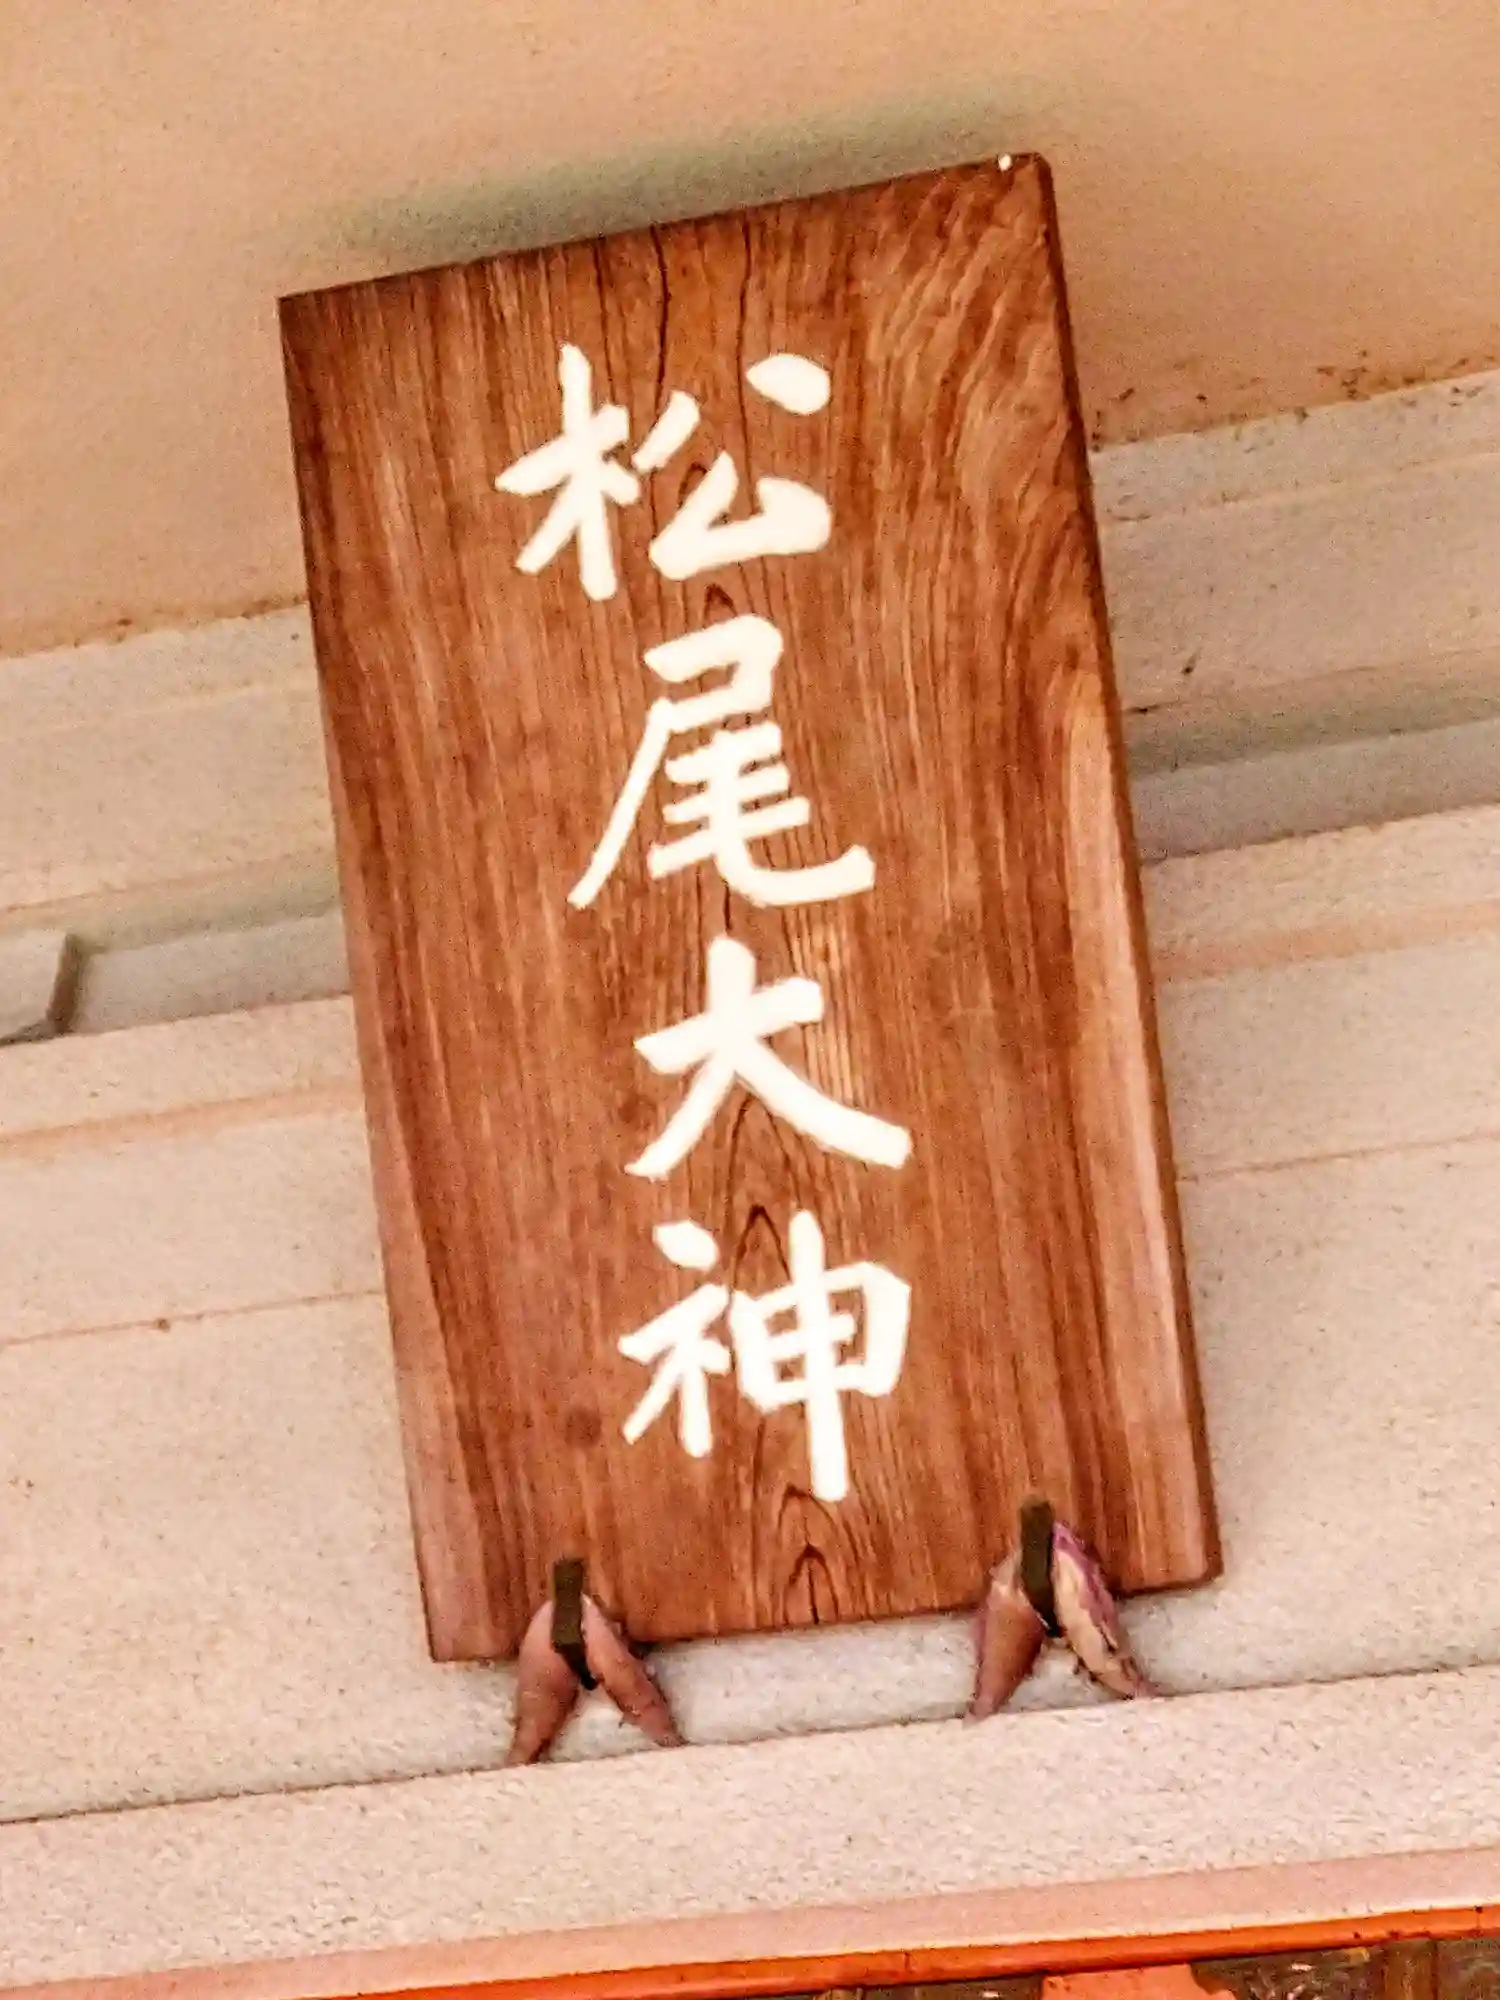 松尾大神